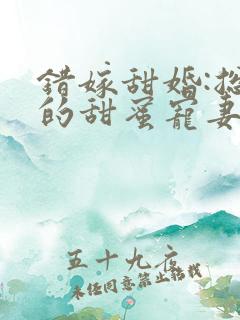 错嫁甜婚:总
的甜蜜宠妻
五十九度
未经同意禁止转载